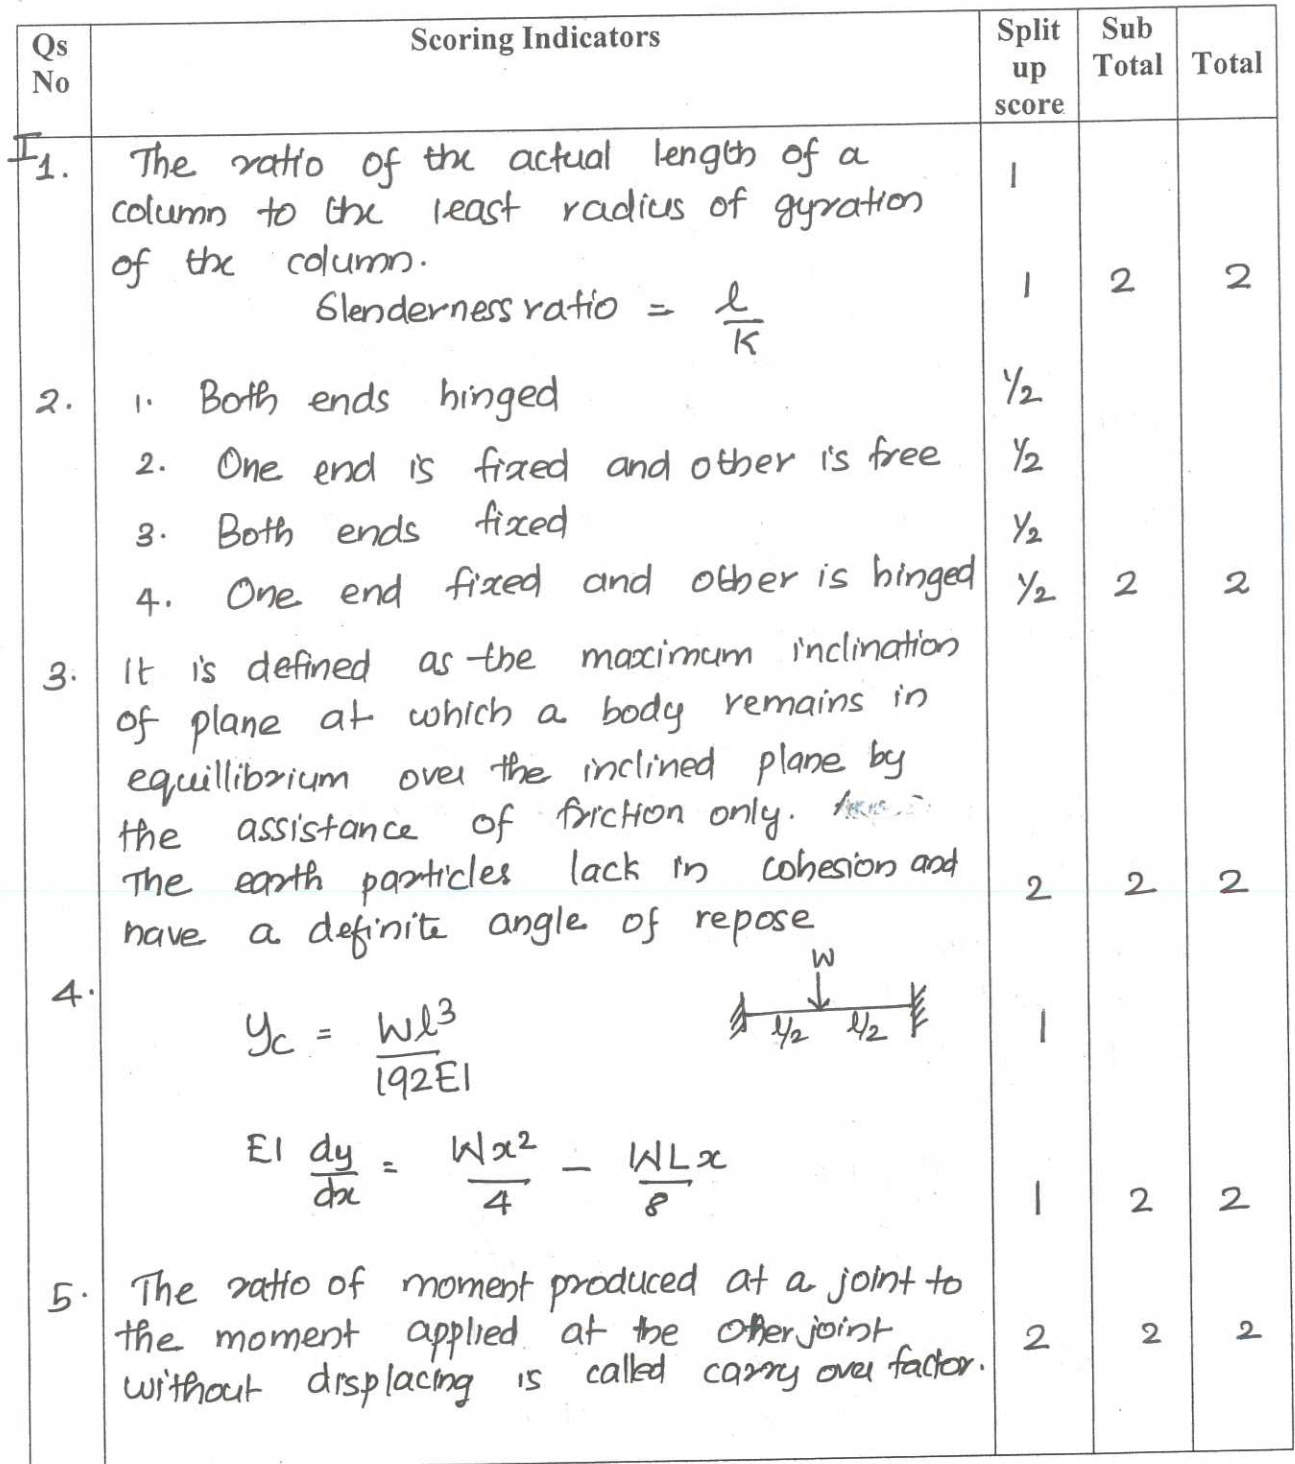 Qs No | Scoring Indicators | Split up score | Sub Total | Total
I 1. The ratio of the actual length of a | 1
column to the least radius of gyration
of the column.
Slenderness ratio = l/K | 1 | 2 | 2
2. 1. Both ends hinged | 1/2
2. One end is fixed and other is free | 1/2
3. Both ends fixed | 1/2
4. One end fixed and other is hinged | 1/2 | 2 | 2
3. It is defined as the maximum inclination
of plane at which a body remains in
equillibrium over the inclined plane by
the assistance of friction only.
The earth particles lack in cohesion and | 2 | 2 | 2
have a definite angle of repose
W
4. yc = Wl³/192EI | l/2 l/2 | 1
EI dy/dx = Wx²/4 - WLx/8 | 1 | 2 | 2
5. The ratio of moment produced at a joint to
the moment applied at the other joint | 2 | 2 | 2
without displacing is called carry over factor.